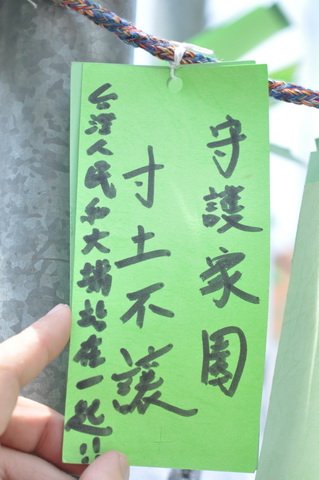 守護家園
寸土不讓
台灣人民和大埔站在一起!!